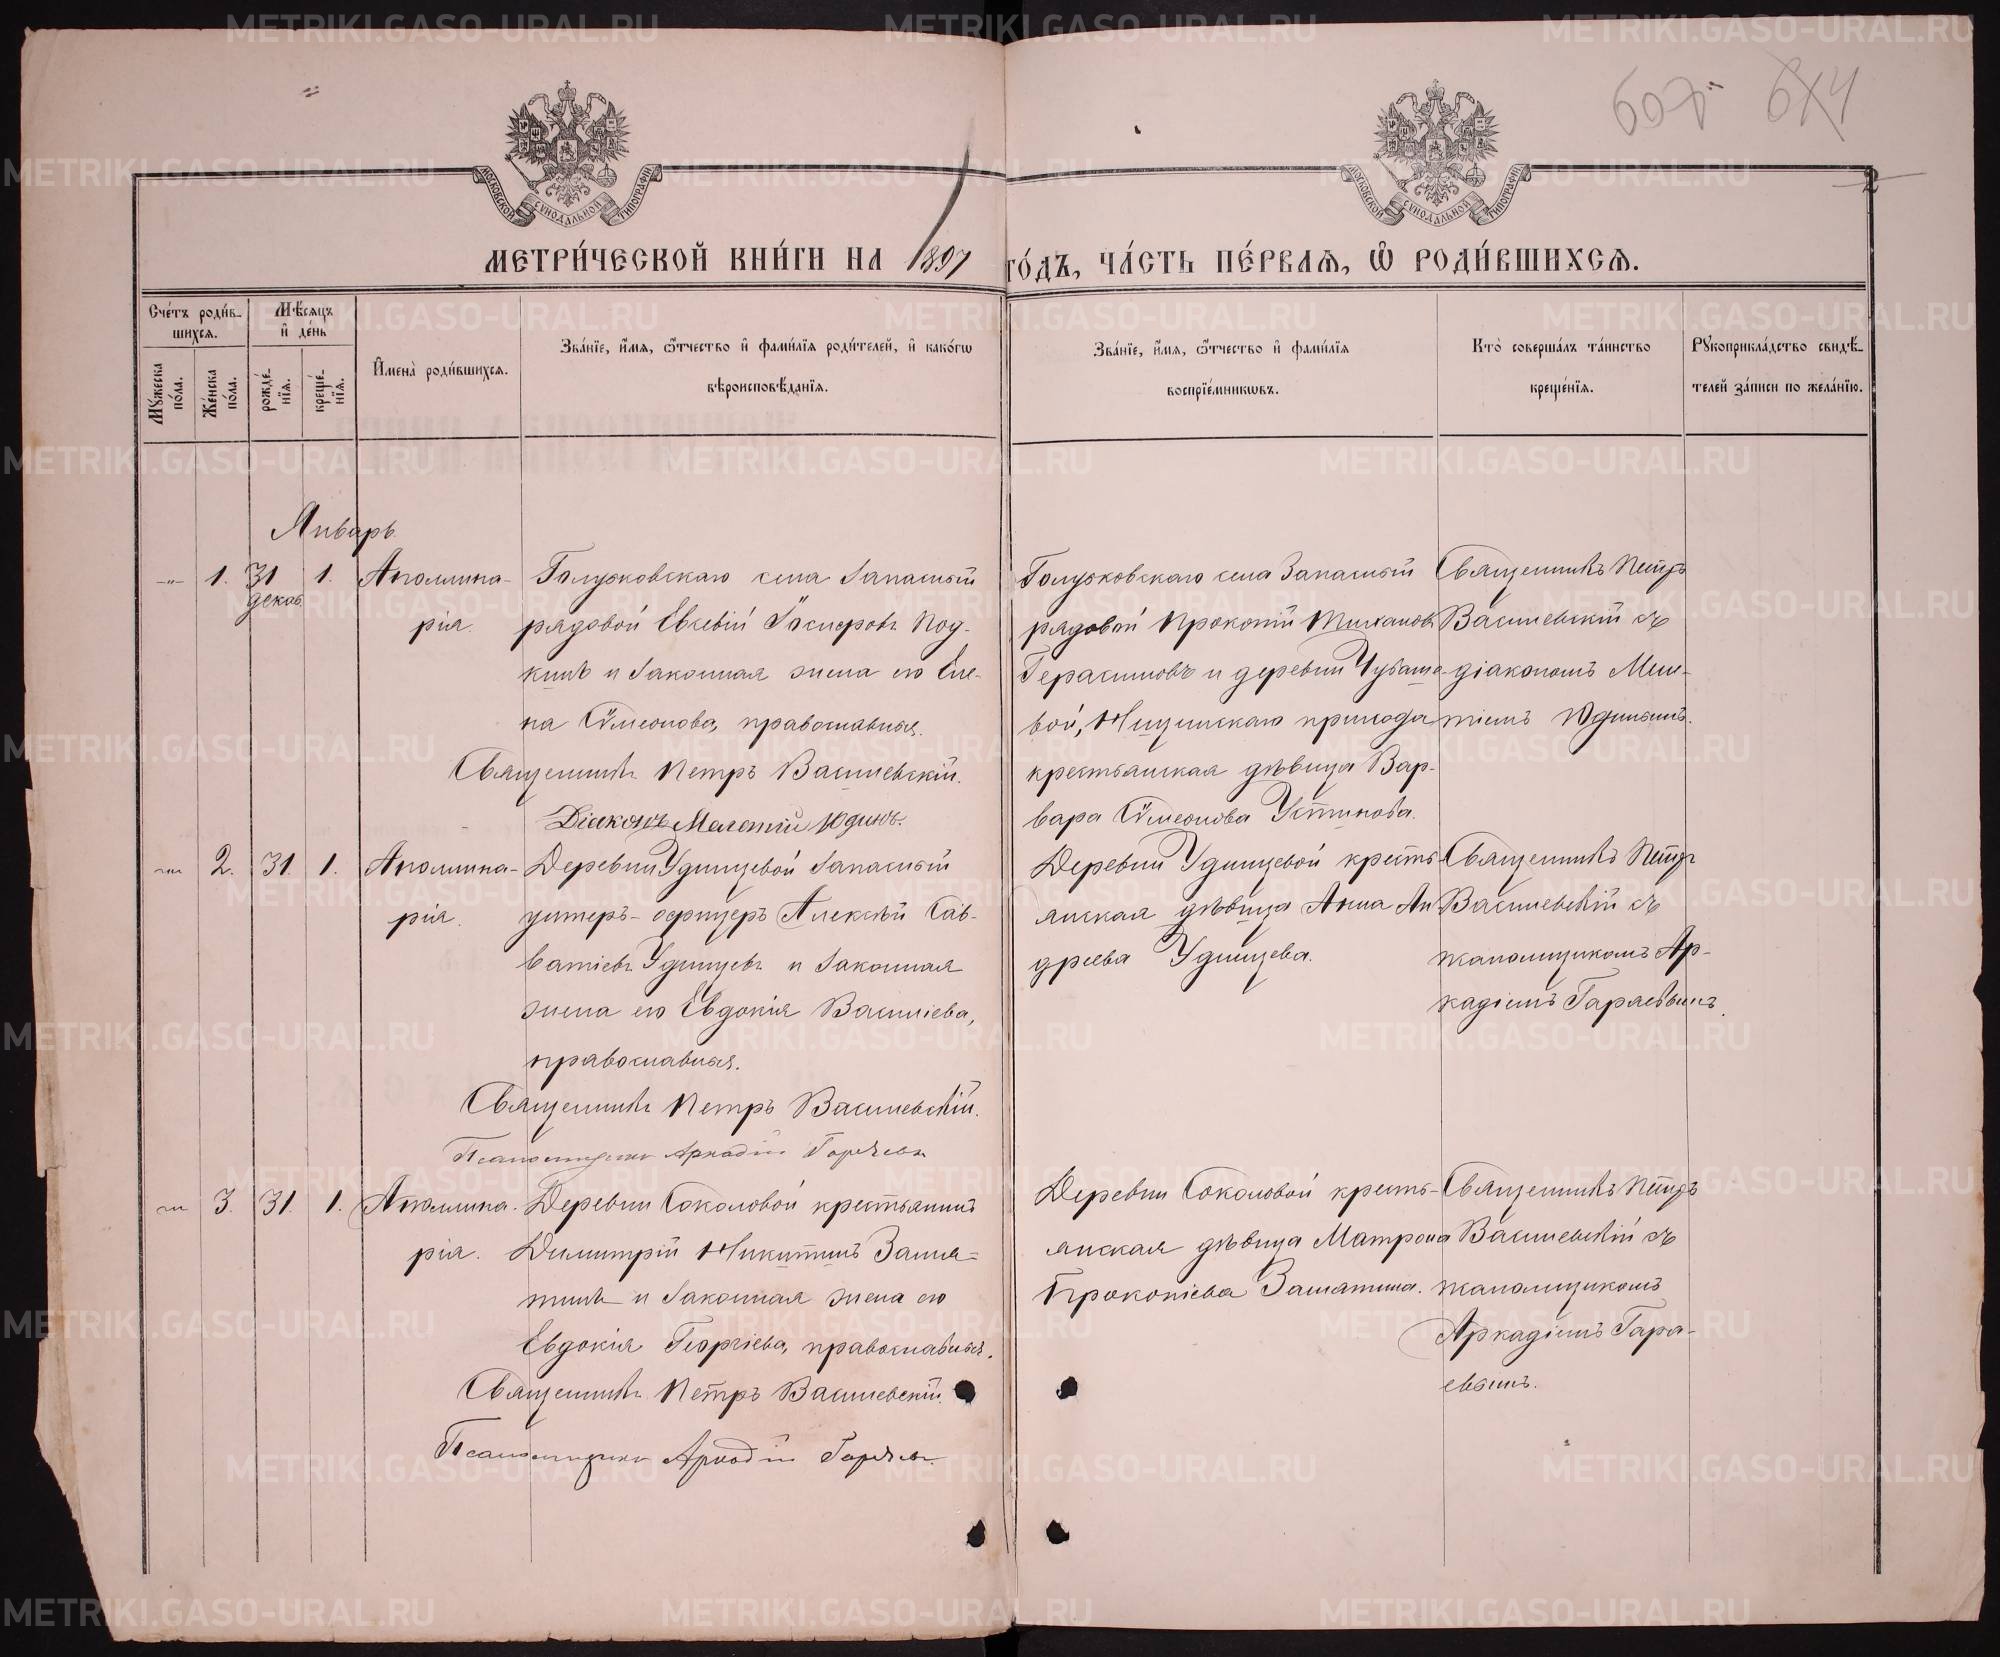 METRIKI.GASO-URAL.RU
607 614
2
МОСКОВСКОЙ СѴНОДАЛЬНОЙ ТИПОГРАФІИ
МОСКОВСКОЙ СѴНОДАЛЬНОЙ ТИПОГРАФІИ
МЕТРИ́ЧЕСКОЙ КНИ́ГИ НА 1897 ГО́ДЪ, ЧА́СТЬ ПЕ́РВАЯ, Ѽ РОДИ́ВШИХСЯ.
Сче́тъ роди́в-
шихся.
Мѣсяцъ
и де́нь
Му́жеска по́ла.
Же́нска по́ла.
рожде́-
нїя.
креще́-
нїя.
Имена̀ роди́вшихся.
Зва́нїе, и́мя, ѻ́тчество и фами́лїя роди́телей, и како́гѡ
вѣроисповѣ́данїя.
Зва́нїе, и́мя, ѻ́тчество и фами́лїя
воспрїе́мникѡвъ.
Кто̀ соверша́лъ та́инство
креще́нїя.
Рукоприкла́дство свидѣ́-
телей за́писи по жела́нїю.
Январь.
-"- 1. 31 декаб. 1.
Аполлина-
рія.
Голубковскаго села запасный
рядовой Евсевій
и законная жена его Еле-
на Сѵмеонова, православные.
Священникъ Петръ Василевскій.
Діаконъ Мелетій Юдинъ.
Голубковскаго села запасный
рядовой Прокопій
Герасимовъ и деревни Чубаше-
вой, Ницинскаго прихода
крестьянская дѣвица Вар-
вара Сѵмеонова Устинова.
Священникъ Петръ
Василевскій съ
діакономъ Меле-
тіемъ Юдинымъ.
-"- 2. 31. 1.
Аполлина-
рія.
Деревни Удинцевой запасный
унтеръ-офицеръ Алексѣй Сав-
ватіевъ Удинцевъ и законная
жена его Евдокія Василіева,
православные.
Священникъ Петръ Василевскій.
Псаломщикъ Аркадій Горяевъ
Деревни Удинцевой кресть-
янская дѣвица Анна Ан
дреева Удинцева.
Священникъ Петръ
Василевскій съ
псаломщикомъ Ар-
кадіемъ Гаряевымъ.
-"- 3. 31. 1.
Аполлина-
рія.
Деревни Соколовой крестьянинъ
Димитрій Никитинъ Замя-
тинъ и законная жена его
Евдокія Георгіева, православные.
Священникъ Петръ Василевскій.
Псаломщикъ Аркадій Горяевъ.
Деревни Соколовой кресть-
янская дѣвица Матрона
Прокопіева Замятина.
Священникъ Петръ
Василевскій съ
псаломщикомъ
Аркадіемъ Гара-
евымъ.